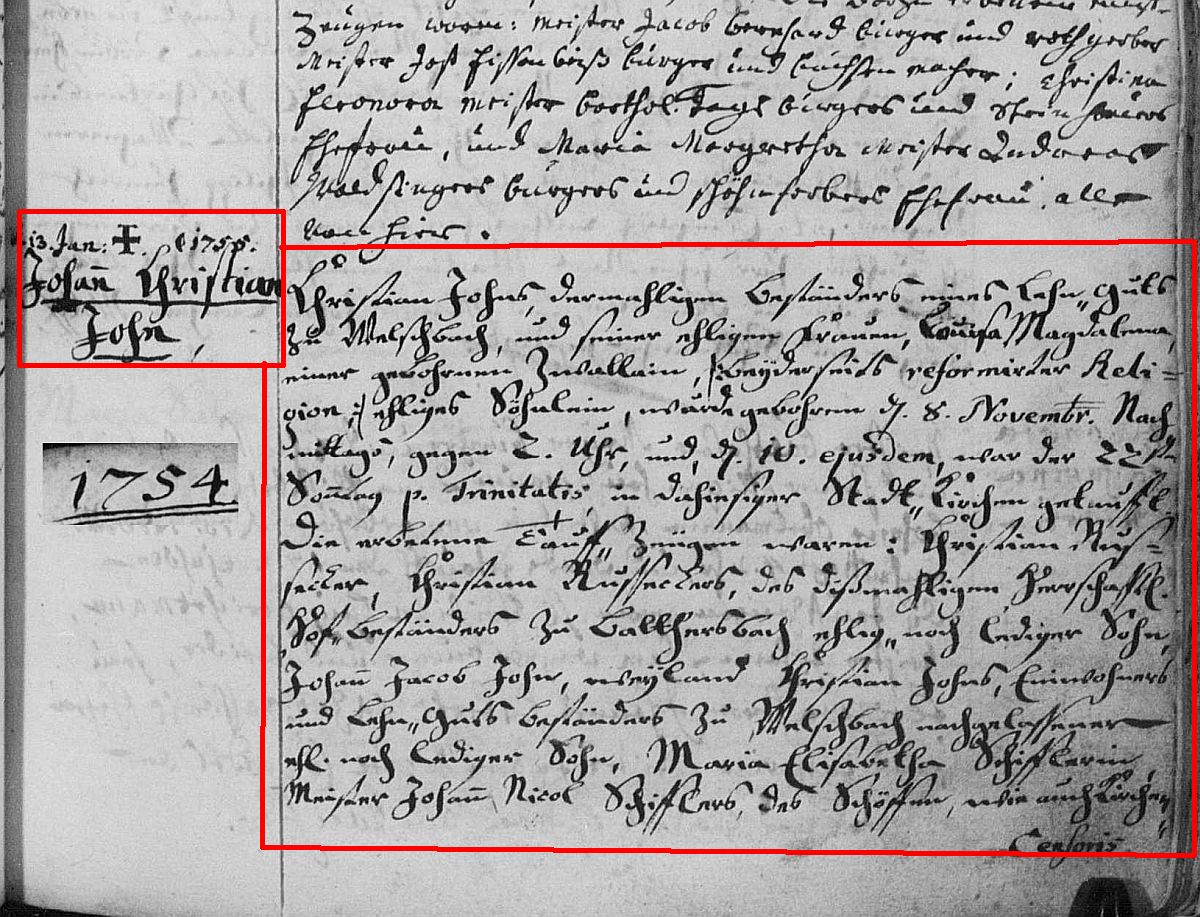 Zeugen waren: Meister Jacob Bernhard burger und rothgerber
Meister Jost burger und buchsen macher; Christina
Eleonora Meister Barthol. burgers und Steinhauers
Ehefrau, und Maria Margretha Meister Andreas
Waldsingers burgers und schöhnferbers Ehefrau, alle
von hier.
13. Jan: ✝. 1755.
Johann Christian
John,
1754.
Christian Johns, dermahligen beständers eines Lehn„Guts
zu Welschbach, und seiner ehligen Frauen, Louisa Magdalena,
einer gebohrnen Zwallain, /:beyderseits reformirter Reli=
gion,:/ ehliges Söhnlein, wurde gebohren d. 8. Novembr. Nach
mittags, gegen 2. Uhr, und, d. 10. ejusdem, war der 22ste
Sonntag p. Trinitatis, in dahiesiger Stadt„Kirchen getaufft.
Die erbetene Tauff„Zeugen waren: Christian Rus=
secker, Christian Russeckers, des dißmahligen Herrschafftl.
Hof„beständers zu Balthersbach ehlig„noch lediger Sohn,
Johann Jacob John, weyland Christian Johns, Einwohners
und Lehn„Guts beständers zu Welschbach nachgelassener
ehl. noch lediger Sohn, Maria Elisabetha Schifflerin,
Meister Johann Nicol Schifflers, des Schöffen, wie auch Kirchen„
Censoris